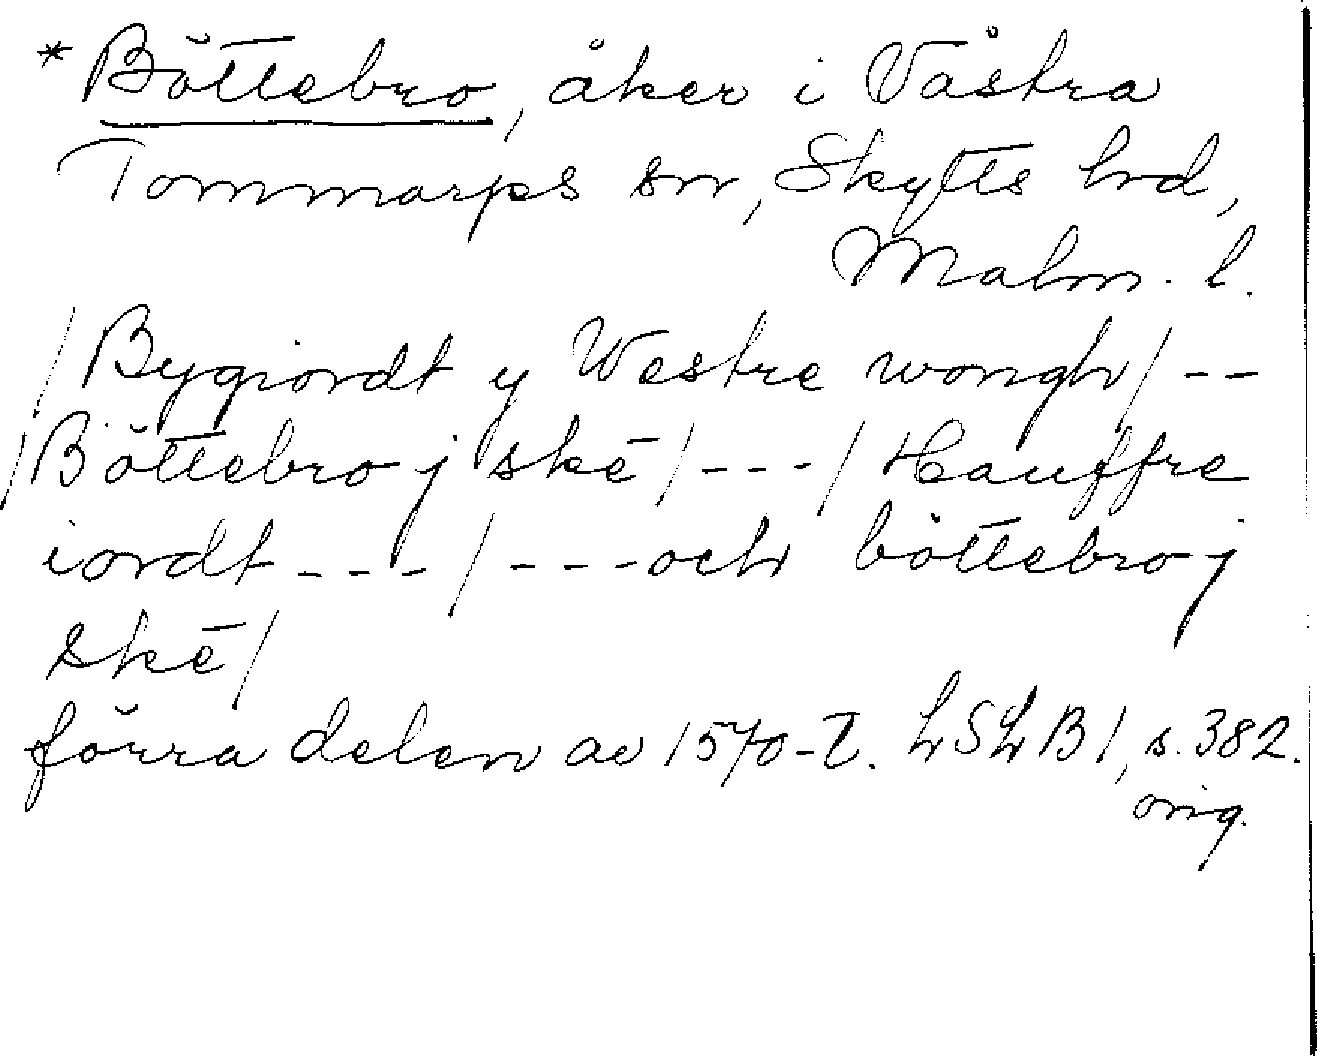 * Böttebro, åker i Västra
Tommarps sn, Skytts hd,
Malm. l.
/Bygiordt y Westre wongh/--
/Böttebro j skē/---/Hauffre
iordt---/---och böttebro j
skē/
förra delen av 1570-t. LSLB1, s. 382.
orig.